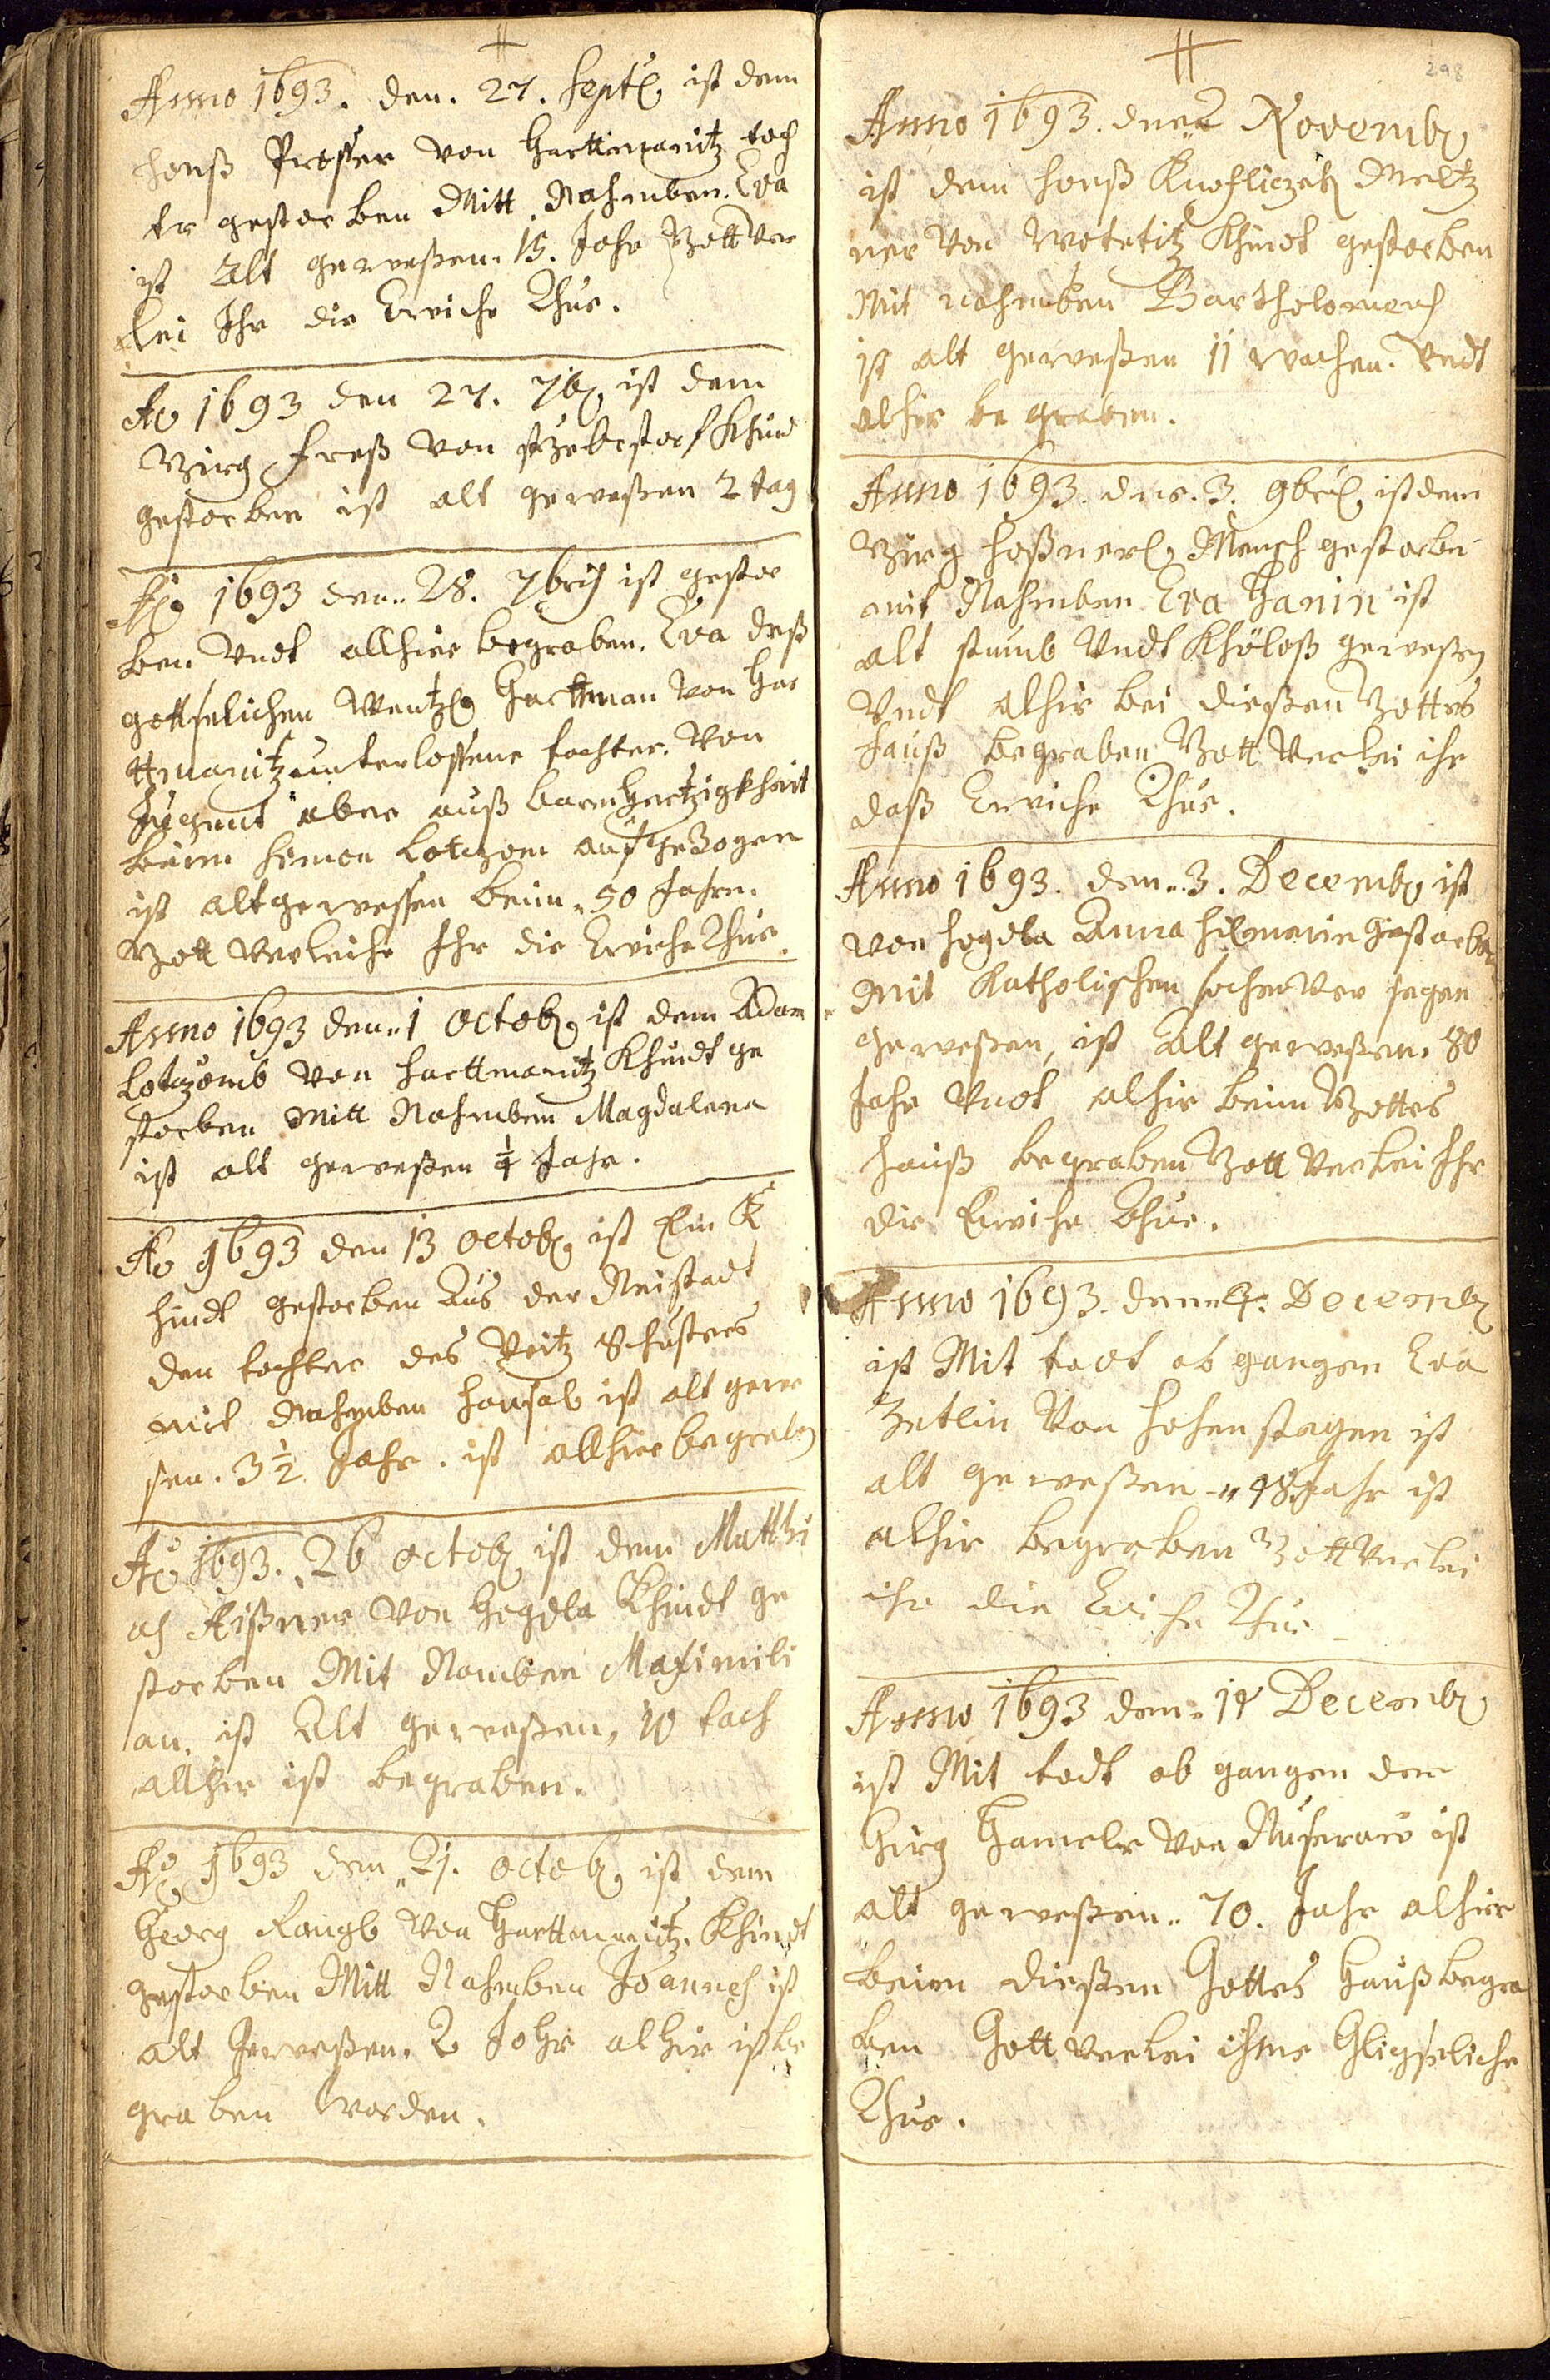 Anno 1693. den. 27. Septe. ist dem
Hanß Prosser von Harttmanitz toch
ter gestorben Mitt Nahmben. Eva
ist Alt geweßen. 15. Johr Gott ver
lei Ihr die Ewiche Rhue.
Ao 1693 den 27. 7b. ist dem
Girg Freß von Khind
gestorben ist alt geweßen 2 tag
Ao 1693 den 28. 7bris ist gestor
ben Undt allhier begraben. Eva deß
gottselichen Wentzl Harttman von Har
ttmanitz hinterlossene tochter. von
Jugent aber auß barmhertzigkheit
beim Simon Lotzom aufgezogen
ist alt gewessen beim 50 Jahrn.
Gott verleihe Ihr die Ewiche Rhue.
Anno 1693 den 1 Octob. ist dem Adam
Lotzomb von Harttmanitz Khindt ge
storben Mitt Nahmben Magdalena
ist alt geweßen ¼ Jahr.
Ao 1693 den 13 Octob. ist Ein K
hindt gestorben Aus der Neistadt
den tochter des Veitz Schusters
mit Nahmben ist alt gewe
sen. 3½ Jahr. ist allhier begraben
Ao 1693. 26 Octob. ist dem Matthi
as von Hegdla Khindt ge
storben Mit Namben Maximili
an. ist Alt geweßen, 10 tach
allhir ist begraben.
Ao 1693 den 21. Octob. ist dem
Georg von Harttmanitz. Khindt
gestorben Mitt Nahmben Joannes ist
alt Geweßen. 2 Johr alhir ist be
graben worden.
298
Anno 1693. den 2 Novemb.
ist dem Honß Knofliczek Meltz
ner von Wotetitz Khindt gestorben
Mit nahmben Bartholomeus
ist alt geweßen 11 wochen. Undt
alhir be graben.
Anno 1693. den. 3. 9bris ist dem
Girg Mensch gestorben
mit Nahmben Eva Hanin ist
alt stumb Undt Khöloß geweßen
Undt alhir bei dießen Gottes
Hauß begraben Gott verlei ihr
daß Ewiche Rhue.
Anno 1693. den 3. Decemb. ist
von Hegdla Anna gestorben
Mit Katholischen sochen ver segen
geweßen, ist Alt geweßen. 80
Jahr Undt alhir beim Gottes
Hauß begraben Gott verlei Ihr
die Ewiche Rhue.
Anno 1693. den 4. Decemb.
ist Mit todt ob gangen Eva
Zetlin von Hohenstegen ist
alt geweßen 48 Jahr ist
alhir begraben Gott verlei
ihr die Ewiche Rhue
Anno 1693 den 14 Decemb.
ist Mit todt ob gangen dem
Girg von ist
alt geweßen 70. Jahr alhier
beim dießen Gottes Hauß begra
ben Gott verlei ihme Gligseliche
Rhue.